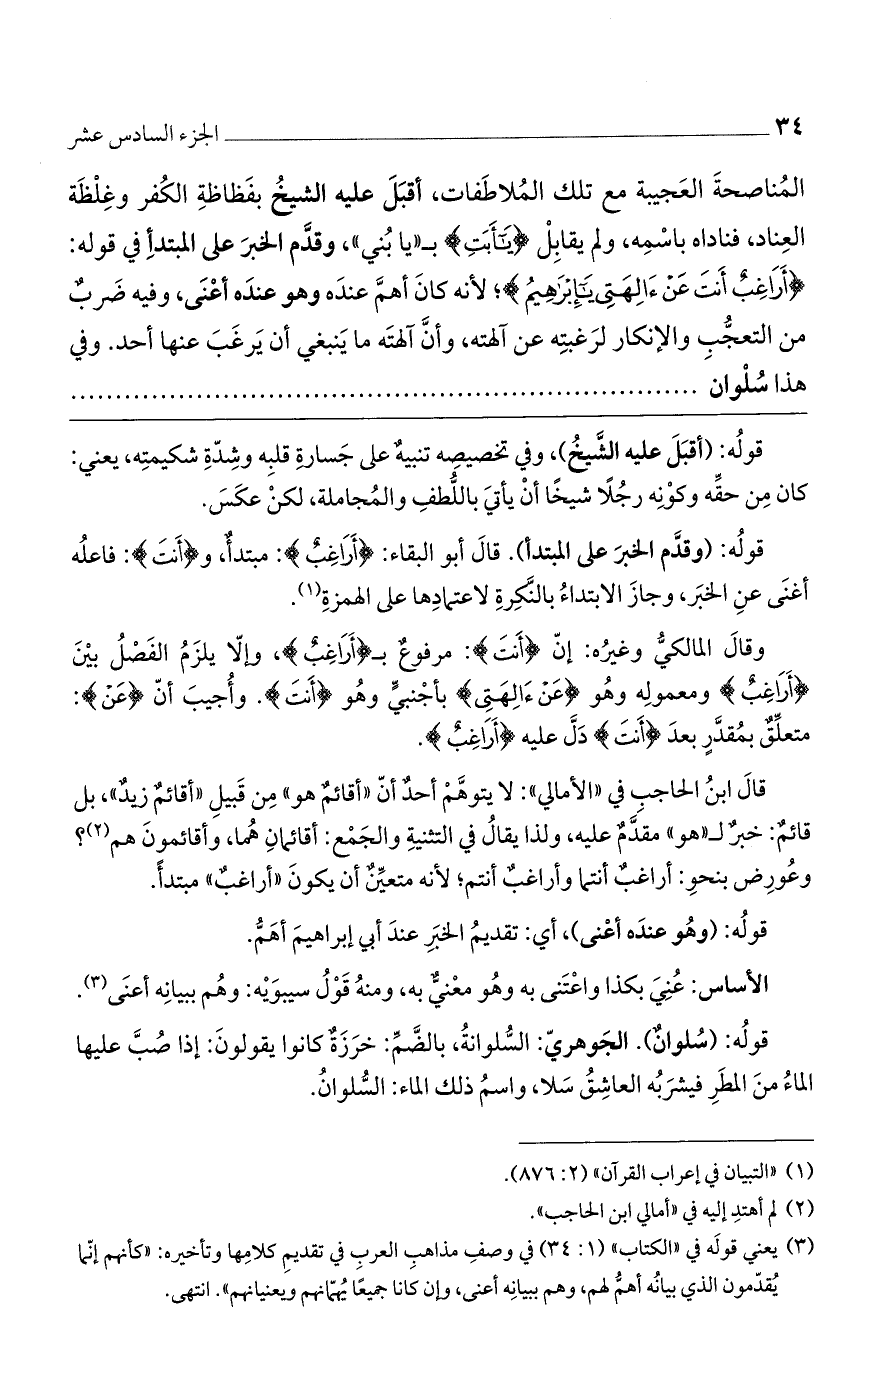 ٣٤ الجزء السادس عشر
المُناصحةَ العَجيبة مع تلك المُلاطَفات، أقبَلَ عليه الشيخُ بفَظاظةِ الكُفر وغِلْظة
العِناد، فناداه باسْمِه، ولم يقابِلْ ﴿يَٰٓأَبَتِ﴾ بـ«يا بُني»، وقدَّم الخبرَ على المبتدأِ في قوله:
﴿أَرَاغِبٌ أَنتَ عَنْ ءَالِهَتِى يَٰٓإِبْرَٰهِيمُ﴾؛ لأنه كانَ أهمَّ عندَه وهو عندَه أعْنَى، وفيه ضَربٌ
من التعجُّبِ والإنكار لرَغبتِه عن آلهته، وأنَّ آلهتَه ما يَنبغي أن يَرغَبَ عنها أحد. وفي
هذا سُلْوان ......................................................................
قولُه: (أقبَلَ عليه الشَّيخُ)، وفي تخصيصِه تنبيهٌ على جَسارةِ قلبِه وشِدّةِ شكيمتِه، يعني:
كان مِن حقِّه وكوْنِه رجُلًا شيخًا أنْ يأتيَ باللُّطفِ والمُجاملة، لكنْ عكَسَ.
قولُه: (وقدَّم الخبرَ على المبتدأ). قالَ أبو البقاء: ﴿أَرَاغِبٌ﴾: مبتدأٌ، و﴿أَنتَ﴾: فاعلُه
أغنَى عنِ الخبَر، وجازَ الابتداءُ بالنَّكِرةِ لاعتمادِها على الهمزةِ(١).
وقالَ المالكيُّ وغيرُه: إنّ ﴿أَنتَ﴾: مرفوعٌ بـ﴿أَرَاغِبٌ﴾، وإلّا يلزَمُ الفَصْلُ بيْنَ
﴿أَرَاغِبٌ﴾ ومعمولِه وهُو ﴿عَنْ ءَالِهَتِى﴾ بأجْنبيٍّ وهُو ﴿أَنتَ﴾. وأُجيبَ أنّ ﴿عَنْ﴾:
متعلِّقٌ بمُقدَّرٍ بعدَ ﴿أَنتَ﴾ دَلَّ عليه ﴿أَرَاغِبٌ﴾.
قالَ ابنُ الحاجبِ في «الأمالي»: لا يتوهَّمْ أحدٌ أنّ «أقائمٌ هو» مِن قَبيلِ «أقائمٌ زيدٌ»، بل
قائمٌ: خبرٌ لـ«هو» مقدَّمٌ عليه، ولذا يقالُ في التثنيةِ والجَمْع: أقائمانِ هُما، وأقائمونَ هم(٢)؟
وعُورِض بنحوِ: أراغبٌ أنتما وأراغبٌ أنتم؛ لأنه متعيِّنٌ أن يكونَ «أراغبٌ» مبتدأً.
قولُه: (وهُو عندَه أعْنى)، أي: تقديمُ الخبَرِ عندَ أبي إبراهيمَ أهَمُّ.
الأساس: عُنِيَ بكذا واعْتَنى به وهُو معْنيٌّ به، ومنهُ قَوْلُ سيبوَيْه: وهُم ببيانِه أعنَى(٣).
قولُه: (سُلوانٌ). الجَوهريّ: السُّلوانةُ، بالضَّمِّ: خرَزَةٌ كانوا يقولونَ: إذا صُبَّ عليها
الماءُ منَ المطَرِ فيشرَبُه العاشِقُ سَلا، واسمُ ذلك الماء: السُّلوانُ.
(١) «التبيان في إعراب القرآن» (٢: ٨٧٦).
(٢) لم أهتدِ إليه في «أمالي ابن الحاجب».
(٣) يعني قولَه في «الكتاب» (١: ٣٤) في وصفِ مذاهبِ العربِ في تقديمِ كلامِها وتأخيره: «كأنهم إنّما
يُقدّمون الذي بيانُه أهمُّ لهم، وهم ببيانِه أعنى، وإن كانا جميعًا يُهمّانهم ويعنيانهم». انتهى.